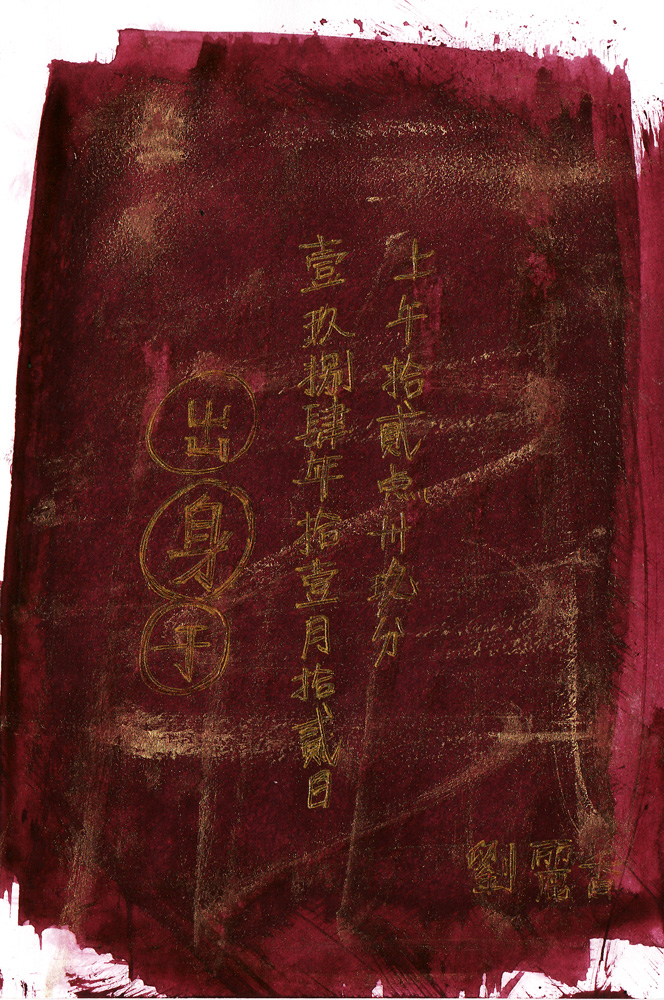 上午拾貳点卅分
壹玖捌肆年拾壹月拾貳日
出身于
劉麗